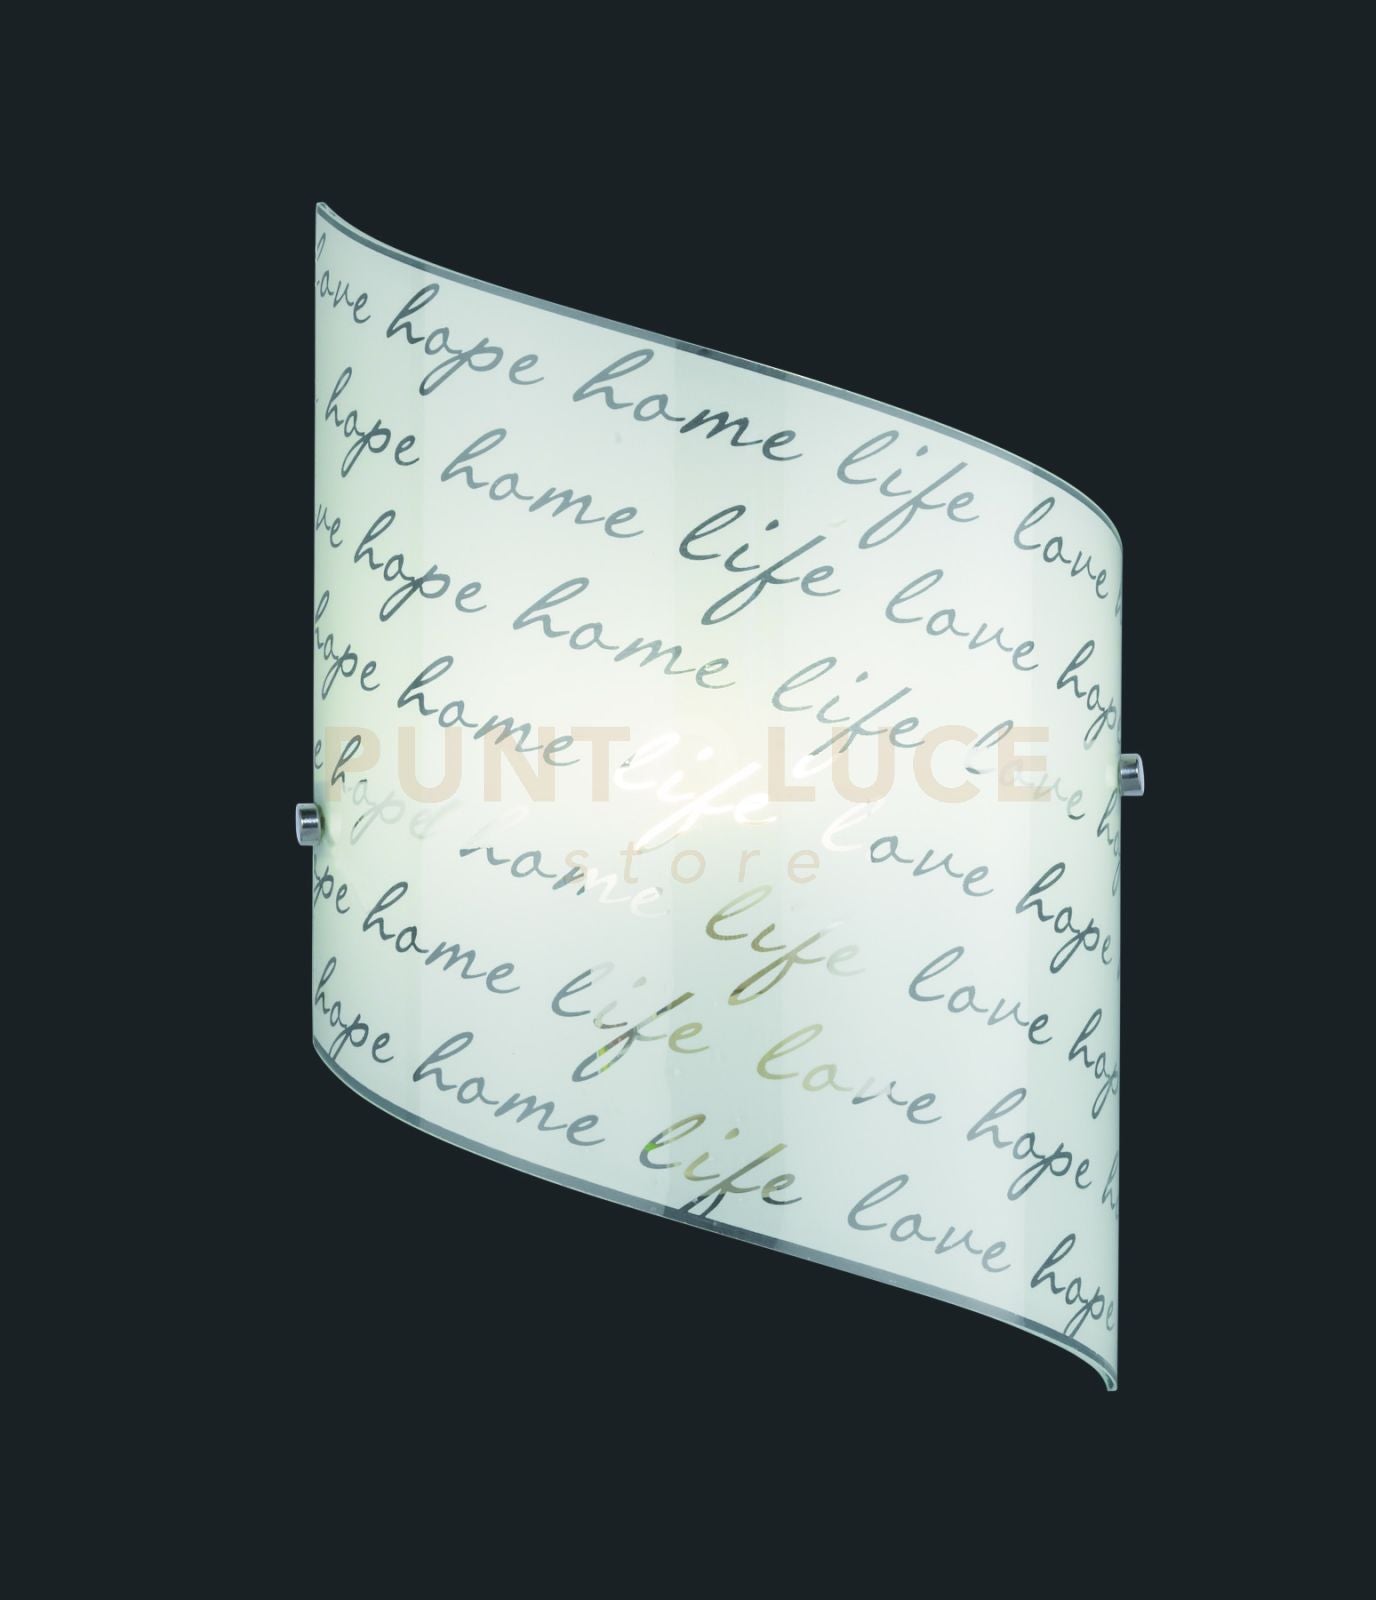 love hope home life love h
hope home life love hop
ve hope home life love ho
hope home life love hope
e hope home life love hop
pe home life love hope h
hope home life love hope
PUNTOLUCE
store